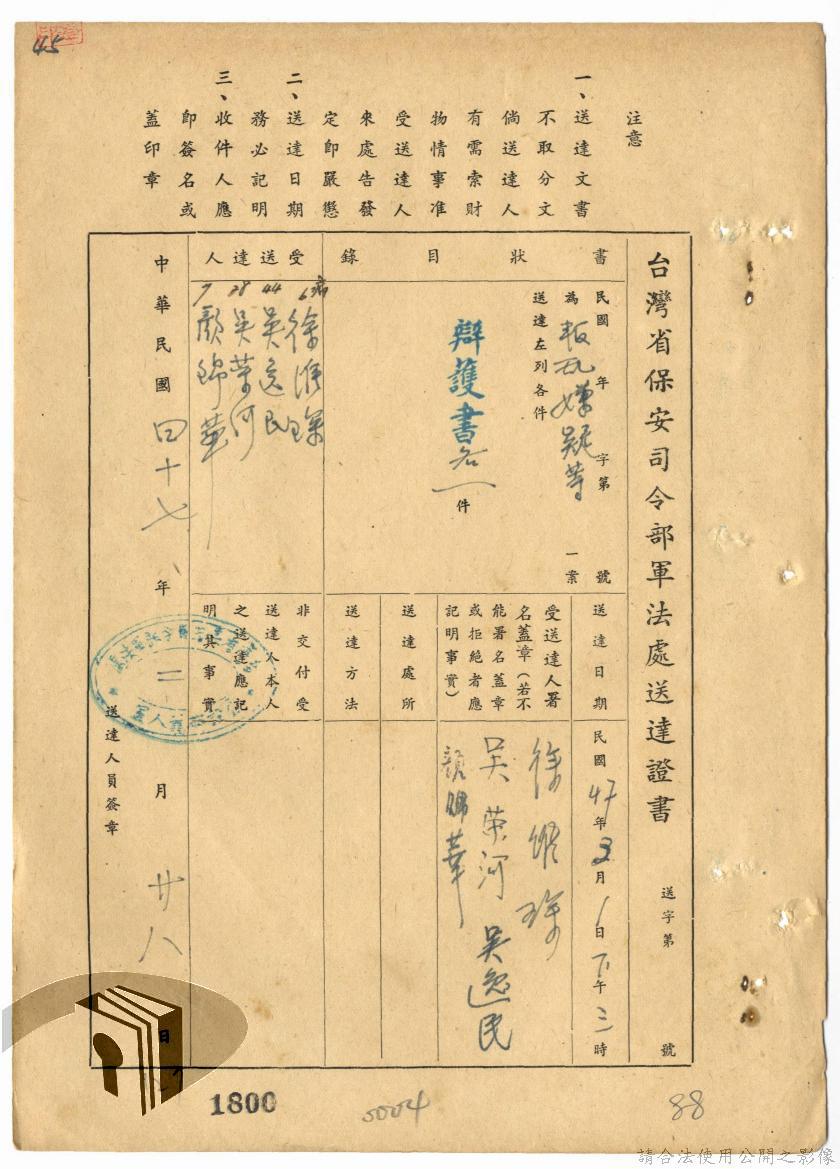 45
注意
一、送達文書
不取分文
倘送達人
有需索財
物情事准
受送達人
來處告發
定即嚴懲
二、送達日期
務必記明
三、收件人應
即簽名或
蓋印章
台灣省保安司令部軍法處送達證書
送字第
號
書狀目錄
民國 年 字第 號
為叛亂嫌疑等一案
送達左列各件
辯護書各一件
受送達人
徐維琛
44 吳逸民
28 吳榮河
7 顏錦華
送達日期
民國47年3月1日下午三時
受送達人署
名蓋章(若不
能署名蓋章
或拒絕者應
記明事實)
徐維琛
吳榮河 吳逸民
顏錦華
送達處所
送達方法
非交付受
送達人本人
之送達應記
明其事實
中華民國四十七年二月廿八日
送達人員簽章
1800
5004
88
請合法使用公開之影像